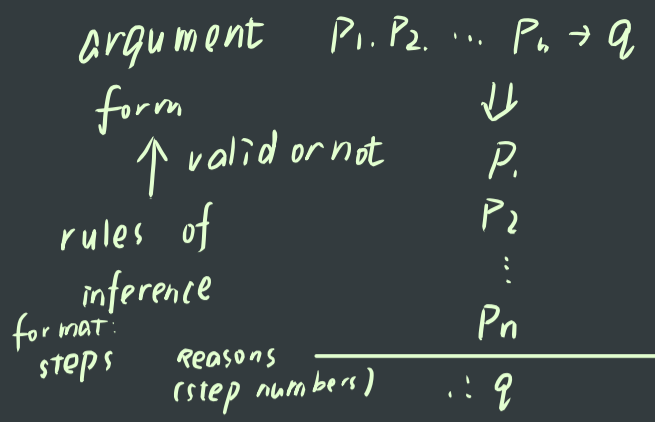 argument P₁. P₂. ... Pₙ → q
form ⇓
↑ valid or not P₁
rules of P₂
inference ⋮
format: Pn
steps Reasons
(step numbers) ∴ q